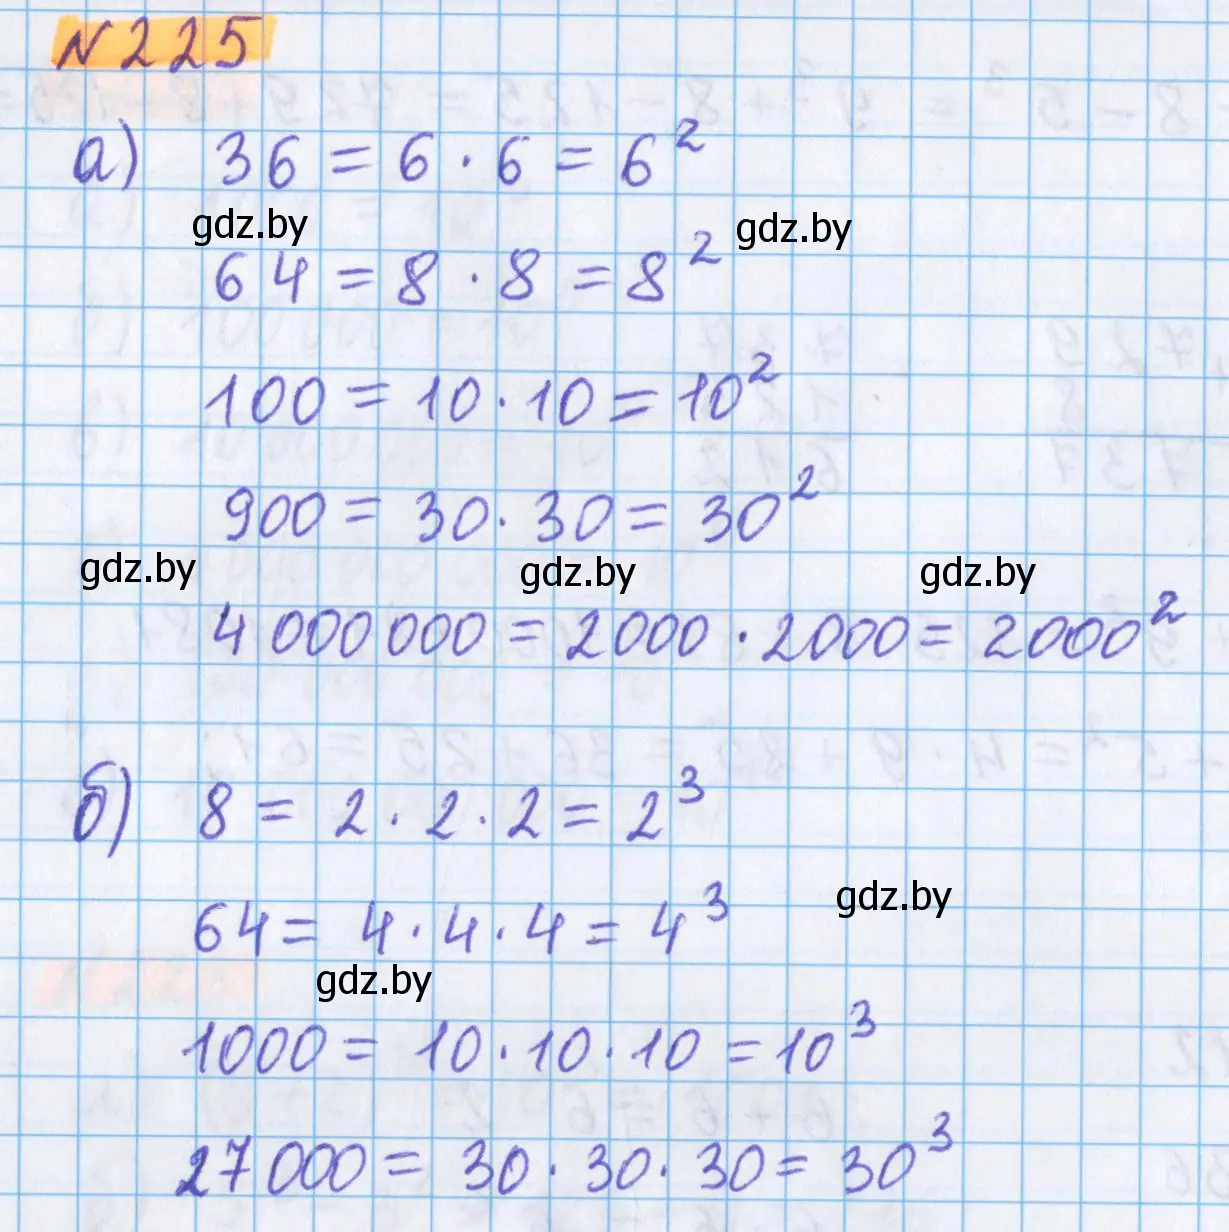 №225
а) 36 = 6 · 6 = 6²
gdz.by gdz.by
64 = 8 · 8 = 8²
100 = 10 · 10 = 10²
900 = 30 · 30 = 30²
gdz.by gdz.by gdz.by
4 000 000 = 2000 · 2000 = 2000²
б) 8 = 2 · 2 · 2 = 2³
gdz.by
64 = 4 · 4 · 4 = 4³
gdz.by
1000 = 10 · 10 · 10 = 10³
27 000 = 30 · 30 · 30 = 30³